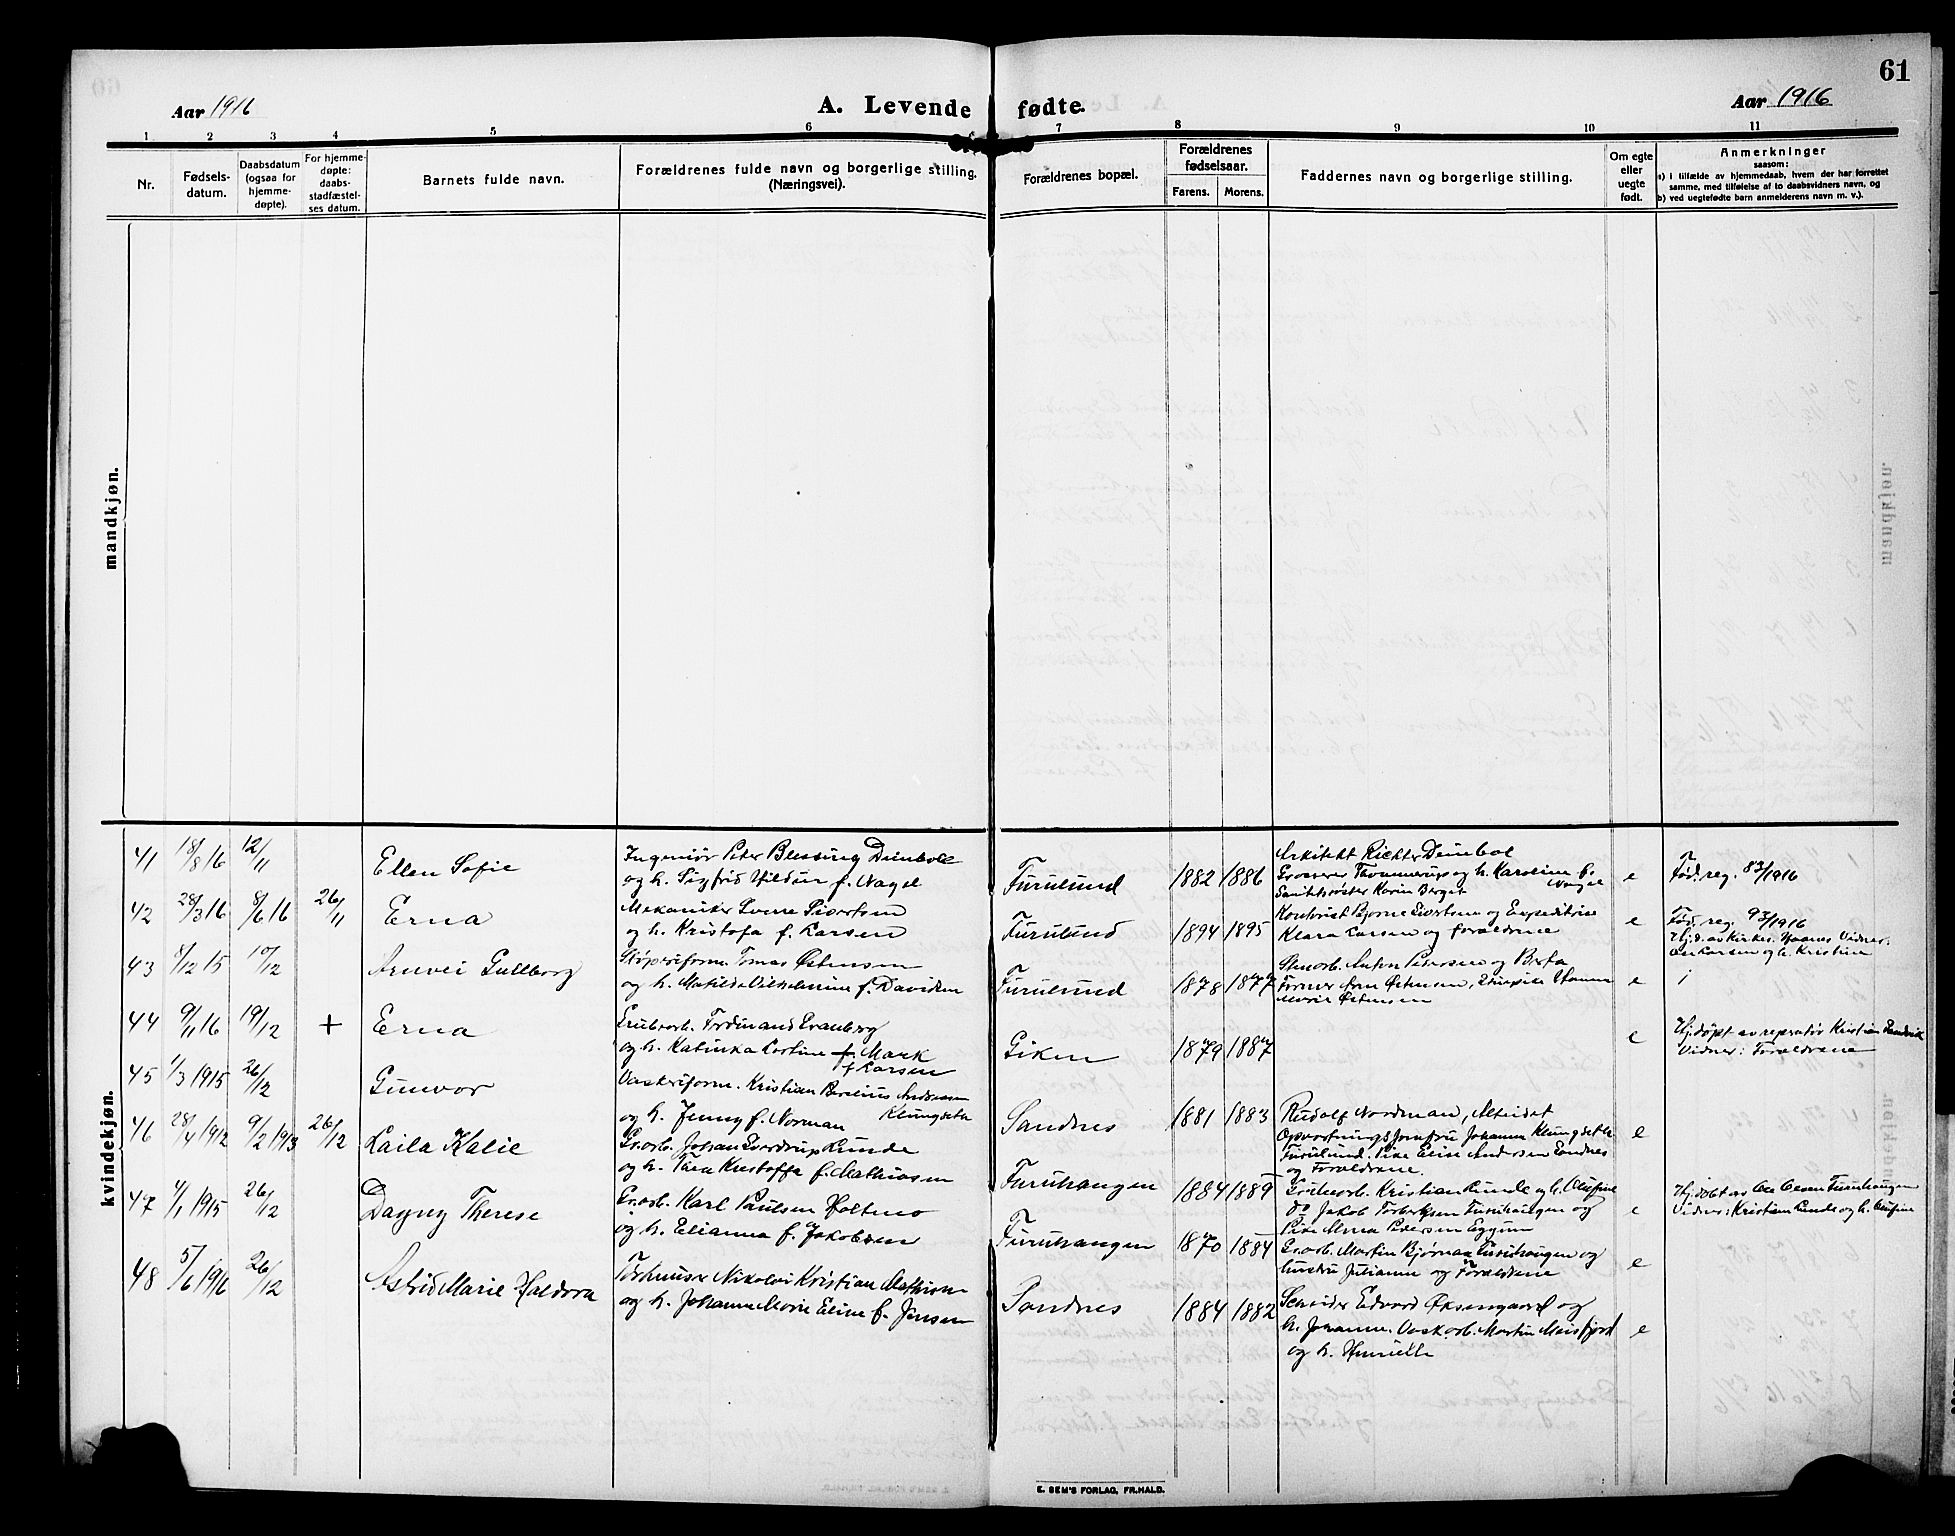 61
Aar 1916
A. Levende fødte.
Aar 1916
1 2 3 4 5 6 7 8 9 10 11
Nr.
Fødsels-
datum.
Daabsdatum
(ogsaa for
hjemme-
døpte).
For hjemme-
døpte:
daabs-
stadfæstel-
ses datum.
Barnets fulde navn.
Forældrenes fulde navn og borgerlige stilling.
(Næringsvei).
Forældrenes bopæl.
Forældrenes
fødselsaar.
Farens. Morens.
Faddernes navn og borgerlige stilling.
Om egte
eller
uegte
født.
Anmerkninger
saasom:
a) i tilfælde av hjemmedaab, hvem der har forrettet
samme, med tilføielse af to daabsvidners navn, og
b) ved uegtefødte barn anmelderens navn m. v.).
mandkjøn.
kvindekjøn.
41 18/8 16 12/11 Ellen Sofie
Ingeniør Peter Blessing Deinboll
og h. Sigfrid Hildur f. Nagel
Furulund 1882 1886
Arkitekt Richter Deinbol
Grosserer Thommerup og h. Karoline f.
Nagel
Karin Berget
e
Fød. reg. 83/1916
42 28/3 16 8/6 16 26/11 Erna
Mekaniker Sverre Sivertsen
og h. Kristofa f. Larsen
Furulund 1894 1895
Kontorist Bjarne Sivertsen og Expeditrise
Klara Larsen og forældrene
e
Fød. reg. 93/1916
Hj.d. av Kirkes. Vidner:
Larsen og h. Kristine
43 8/12 15 10/12 Arnvei Gullborg
Støperiform. Tomas Østensen
og h. Matilde Vilhelmine f. Davidsen
Furulund 1878 1877
Anton Petersen og Berta
Østensen,
Marie Østensen
e
44 9/11 16 19/12 + Erna
Grubearb. Ferdinand Svanberg
og h. Katinka f. Mark
f. Larsen
Giken 1879 1887
e
Hj.døpt av reperatør Kristian
Vidner: Forældrene
45 1/3 1915 26/12 Gunvor
Vaskeriform. Kristian Andersen
Klungseth
og h. Jenny f. Norman
Sandnes 1881 1883
Rudolf Nordman,
Opvartningsjomfru Johanna Klungseth
Furulund. Pike Elise Andersen Sandnes
og Forældrene.
e
46 28/4 1912 9/2 1913 26/12 Laila Kalie
Gr.arb. Johan Sverdrup Runde
og h. Thea Kristoffa f. Mathiasen
Furuhaugen 1884 1889
Grubearb. Kristian Runde og h. Olufine
Jakob Torbergsen Furuhaugen og
Pike Anna Pedersen Eggum
e
Hj.døbt av Ole Olsen Furuhaugen
Vidner: Kristian Runde og h. Olufine
47 4/1 1915 26/12 Dagny Therese
Gr.arb. Karl Paulsen Holtmo
og h. Elianna f. Jakobsen
Furuhaugen 1870 1884
Gr.arb. Martin Bjørnaa Furuhaugen og
hustru Julianne og Forældrene
e
48 5/6 1916 26/12 Astrid Marie Haldora
Nikolai Kristian Mathisen
og h. Johanne Marie Eline f. Jensen
Sandnes 1884 1882
Edvard Øksengaard og
h. Johanne. Vaskarb. Martin Meisfjord
og h.
e
E. SEM'S FORLAG, FR.HALD.